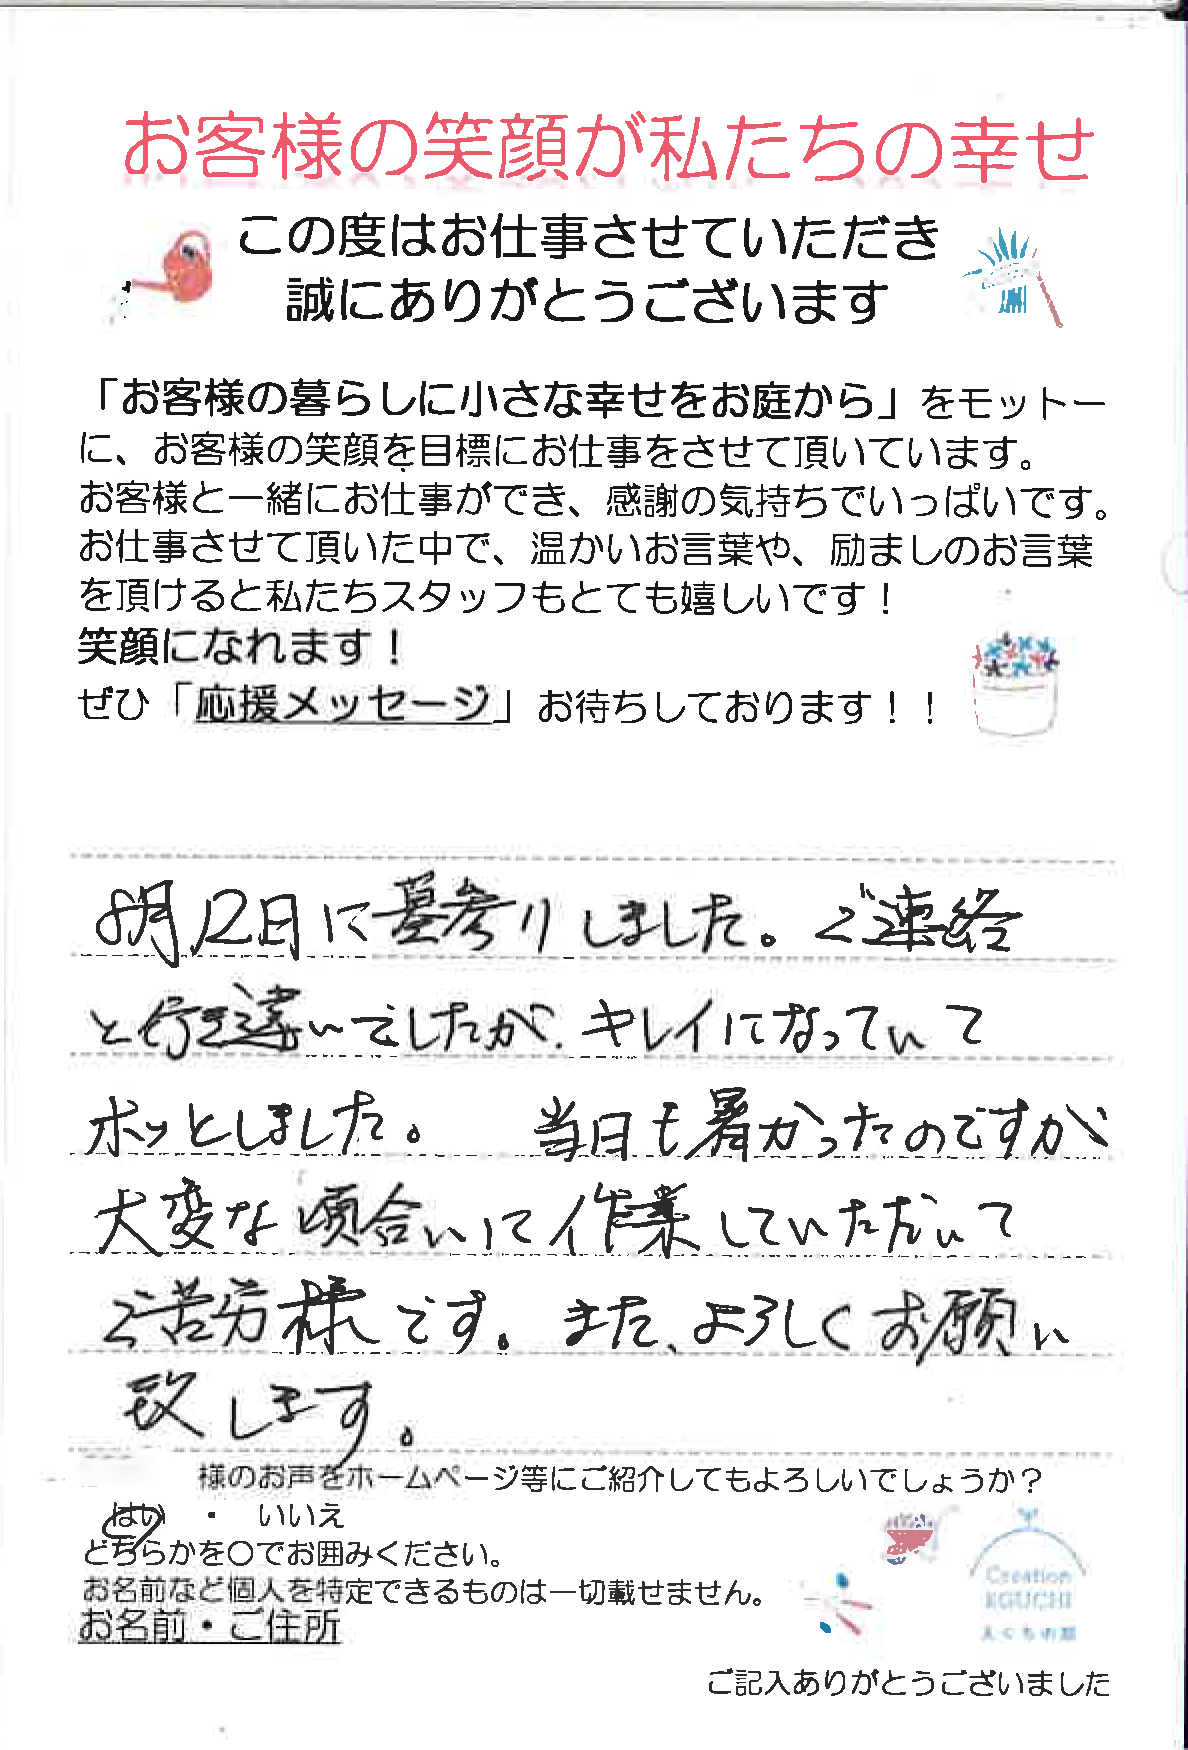 お客様の笑顔が私たちの幸せ
この度はお仕事させていただき
誠にありがとうございます
「お客様の暮らしに小さな幸せをお庭から」をモットー
に、お客様の笑顔を目標にお仕事をさせて頂いています。
お客様と一緒にお仕事ができ、感謝の気持ちでいっぱいです。
お仕事させて頂いた中で、温かいお言葉や、励ましのお言葉
を頂けると私たちスタッフもとても嬉しいです！
笑顔になれます！
ぜひ「応援メッセージ」お待ちしております！！
8月12日に墓参りしました。ご連絡
と行き違いでしたが、キレイになっていて
ホッとしました。 当日も暑かったのですが
大変な頃合いに作業していただいて
ご苦労様です。また、よろしくお願い
致します。
様のお声をホームページ等にご紹介してもよろしいでしょうか？
はい ・ いいえ
どちらかを〇でお囲みください。
お名前など個人を特定できるものは一切載せません。
お名前・ご住所
Creation
EGUCHI
えぐちの庭
ご記入ありがとうございました